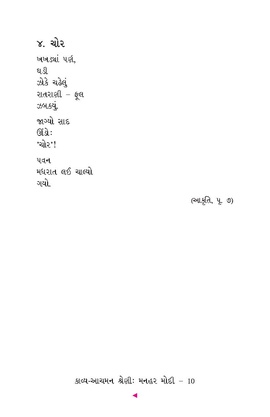 ૪. ચોર
ખખડ્યાં પર્ણ,
ઘડી
ઝોકે ચઢેલું
રાતરાણી – ફૂલ
ઝબક્યું.
જાગ્યો સાદ
ઊંડો:
‘ચોર’!
પવન
મધરાત લઈ ચાલ્યો
ગયો.
(આકૃતિ, પૃ. ૭)
કાવ્ય-આચમન શ્રેણી: મનહર મોદી – 10